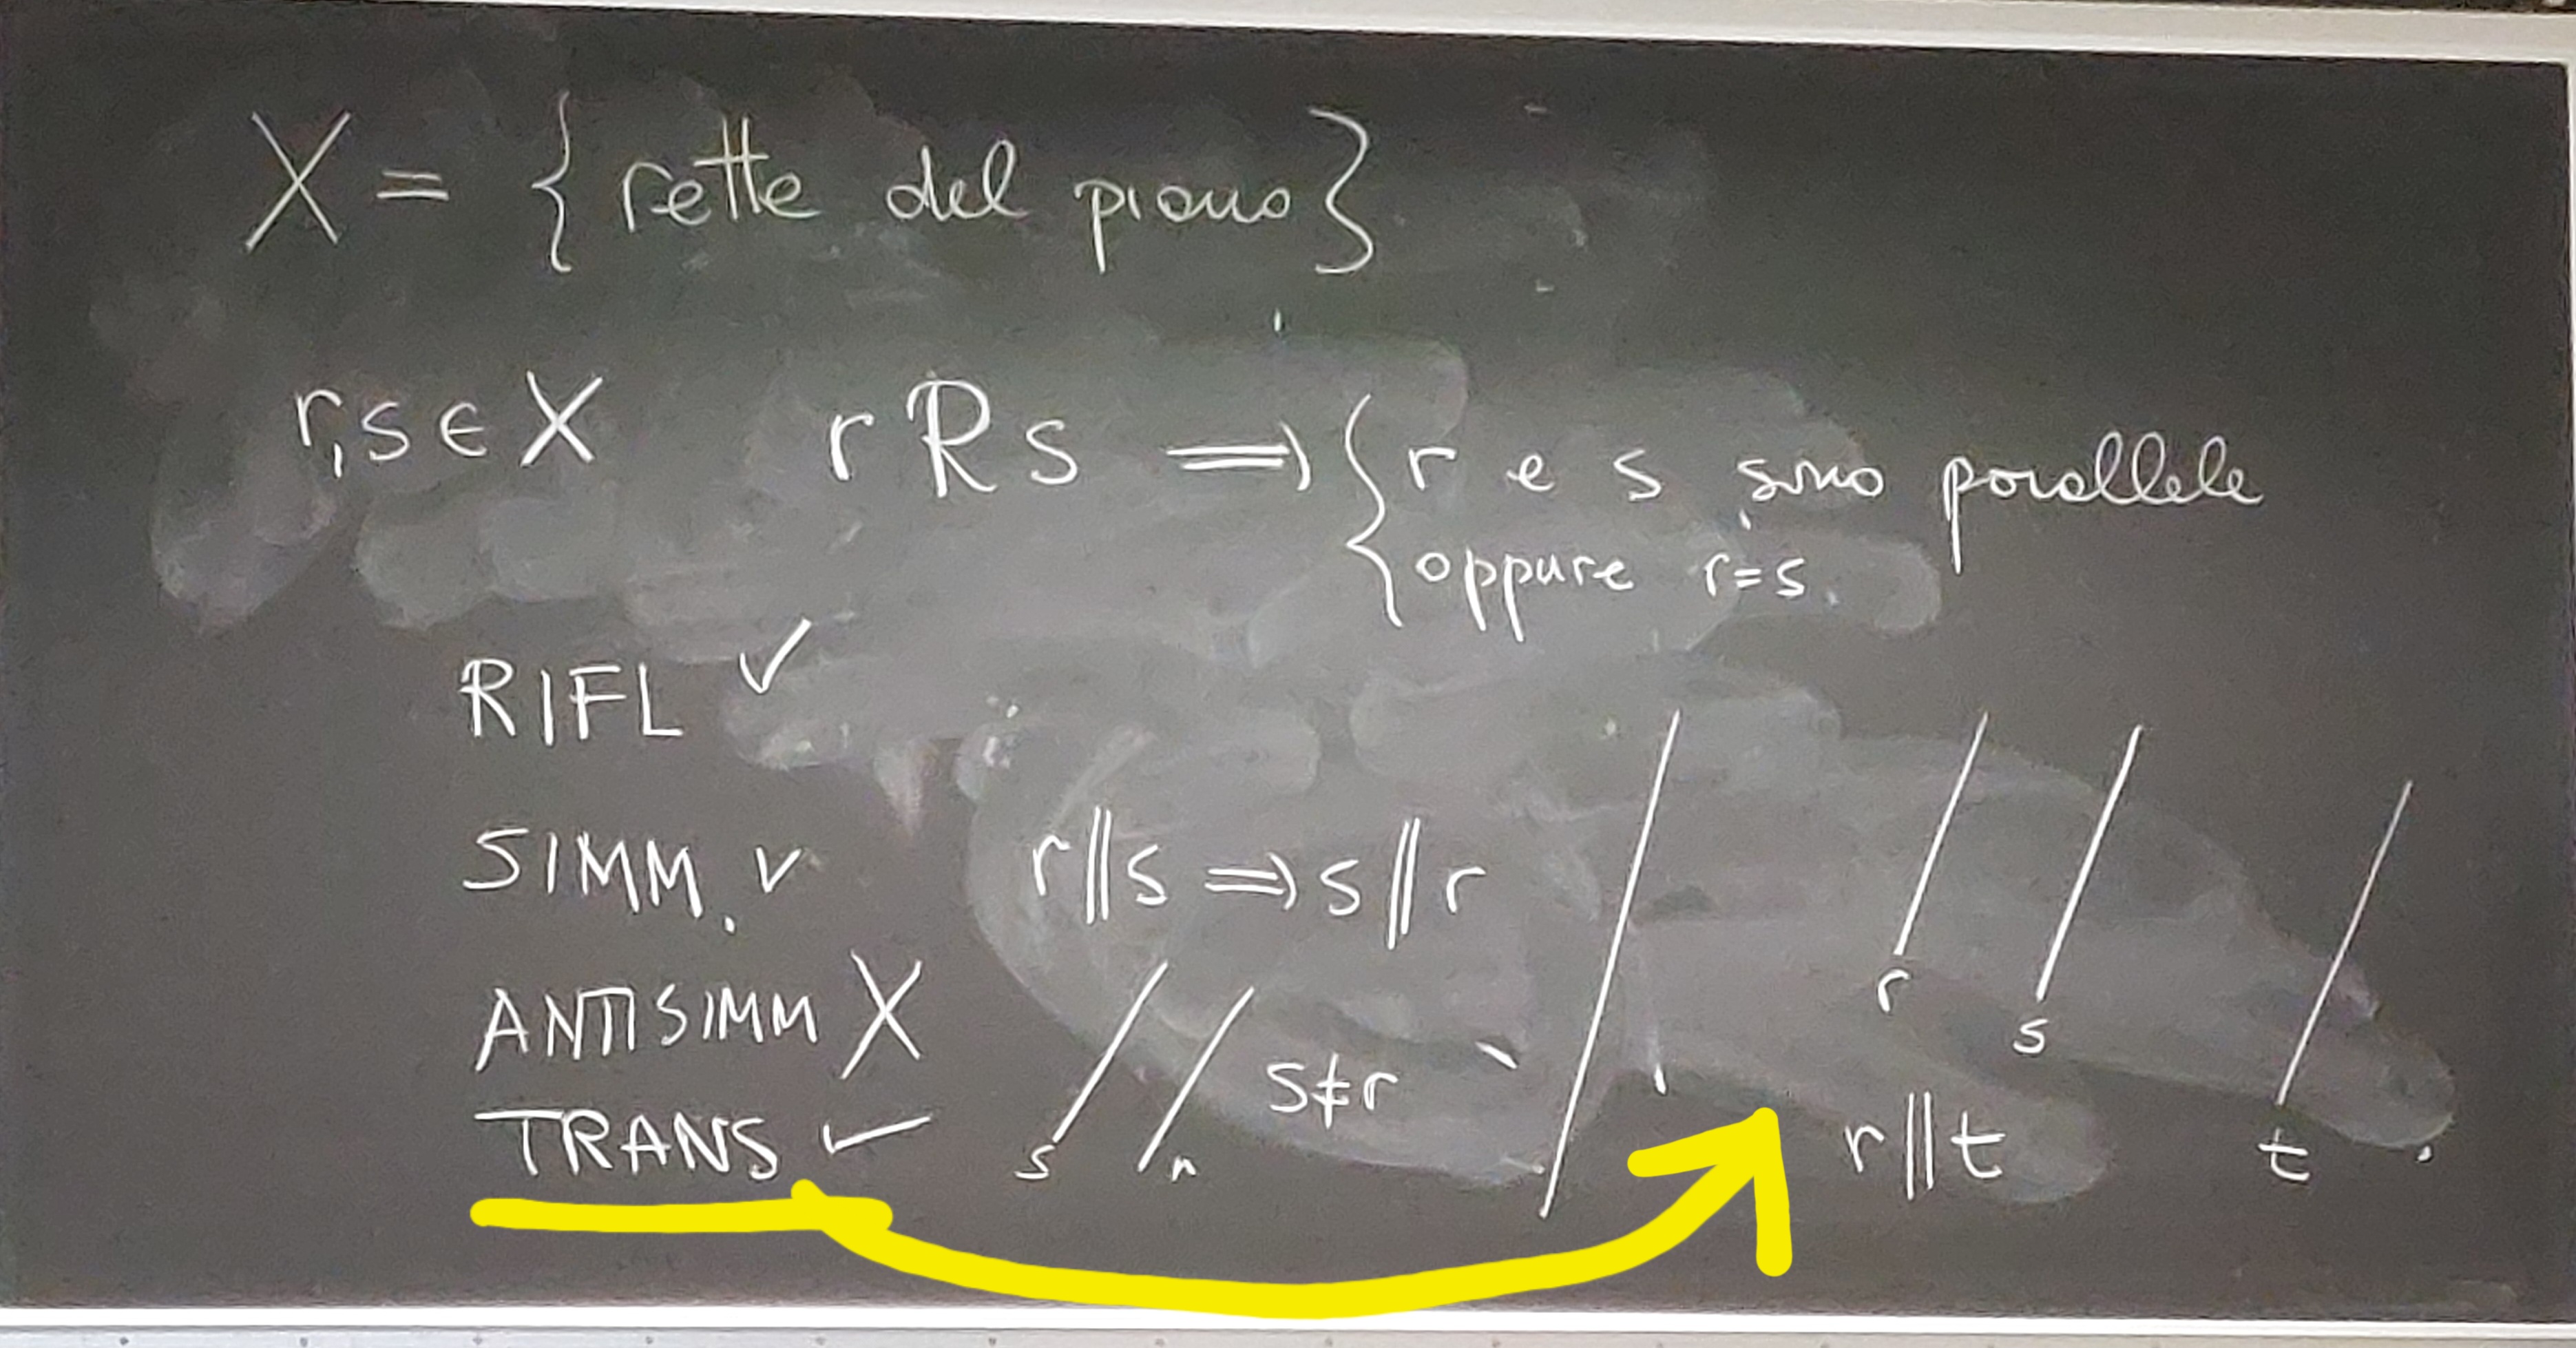 X = { rette del piano }
r,s ∈ X   r R s ⟹ { r e s sono parallele
oppure r=s.
RIFL ✓
SIMM. ✓   r∥s ⟹ s∥r
ANTISIMM X
s   r   s≠r
TRANS ✓
r   s   t
r∥t